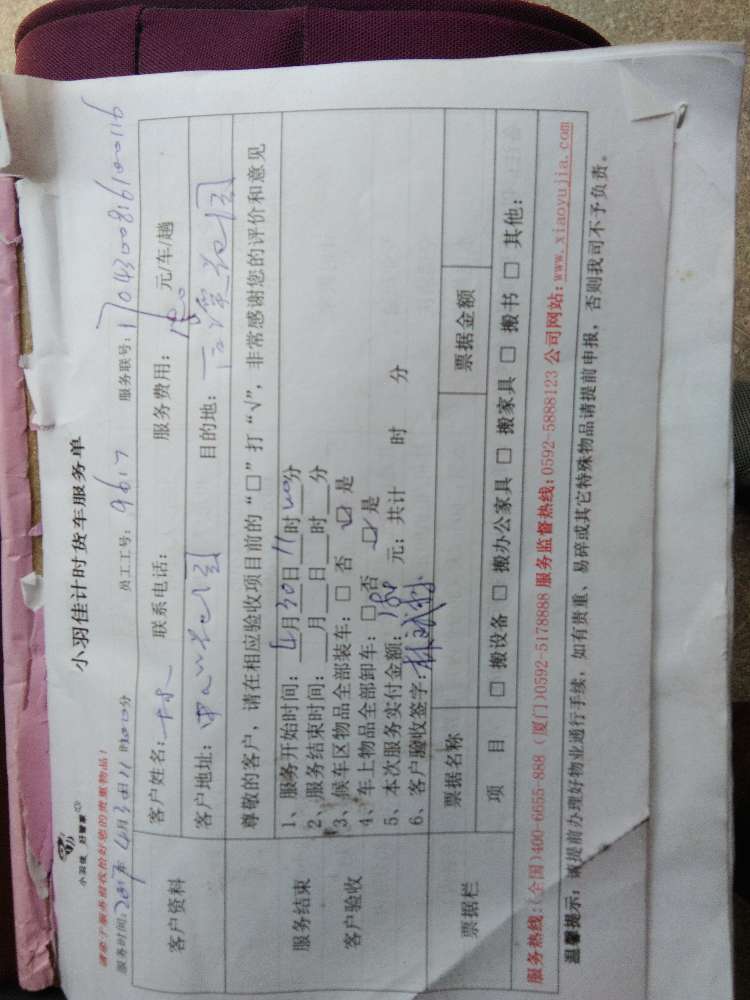 小羽佳 好管家
小羽佳计时货车服务单
请您于服务前收拾好您的贵重物品!
服务时间:2017年4月30日11时00分 员工工号:9617 服务联号:1704300816100116
客户资料
客户姓名: 联系电话: 服务费用:180元/车/趟
客户地址: 目的地:
尊敬的客户,请在相应验收项目前的“□”打“√”,非常感谢您的评价和意见
服务结束
客户验收
1、服务开始时间:4月30日11时00分
2、服务结束时间: 月 日 时 分
3、候车区物品全部装车:□ 否 ☑ 是
4、车上物品全部卸车:□ 否 ☑ 是
5、本次服务实付金额:180元;共计 时 分
6、客户验收签字:
票据栏
票据名称 票据金额
项 目 □ 搬设备 □ 搬办公家具 □ 搬家具 □ 搬书 □ 其他:
服务热线:(全国)400-6655-888 (厦门)0592-5178888 服务监督热线:0592-5888123 公司网站:www.xiaoyujia.com
温馨提示:请提前办理好物业通行手续,如有贵重、易碎或其它特殊物品请提前申报,否则我司不予负责。